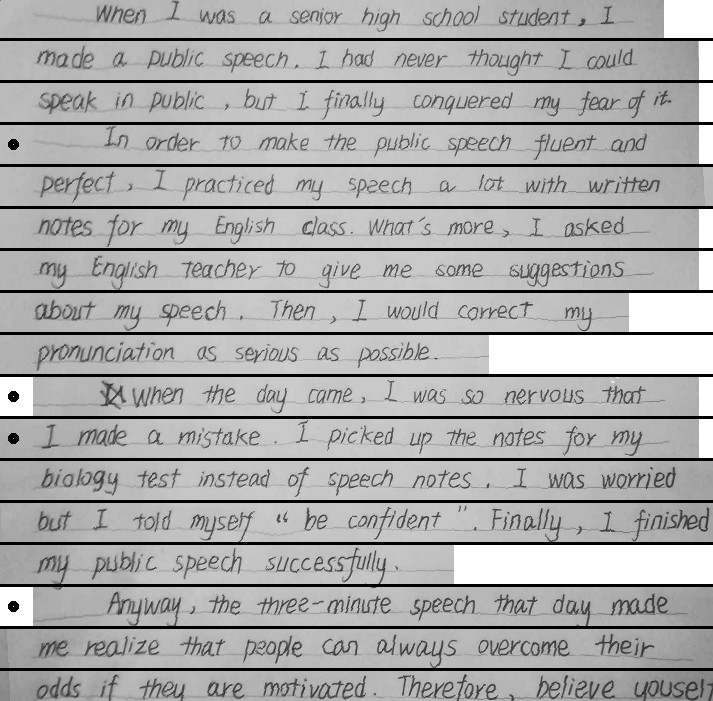 When I was a senior high school student, I
made a public speech. I had never thought I could
speak in public, but I finally conquered my fear of it.
In order to make the public speech fluent and
perfect, I practiced my speech a lot with written
notes for my English class. What's more, I asked
my English teacher to give me some suggestions
about my speech. Then, I would correct my
pronunciation as serious as possible.
When the day came, I was so nervous that
I made a mistake. I picked up the notes for my
biology test instead of speech notes. I was worried
but I told myself "be confident". Finally, I finished
my public speech successfully.
Anyway, the three-minute speech that day made
me realize that people can always overcome their
odds if they are motivated. Therefore, believe youself